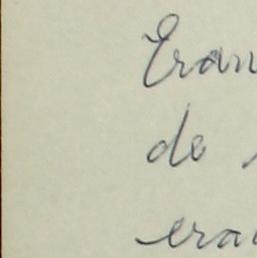 Eran
de
era